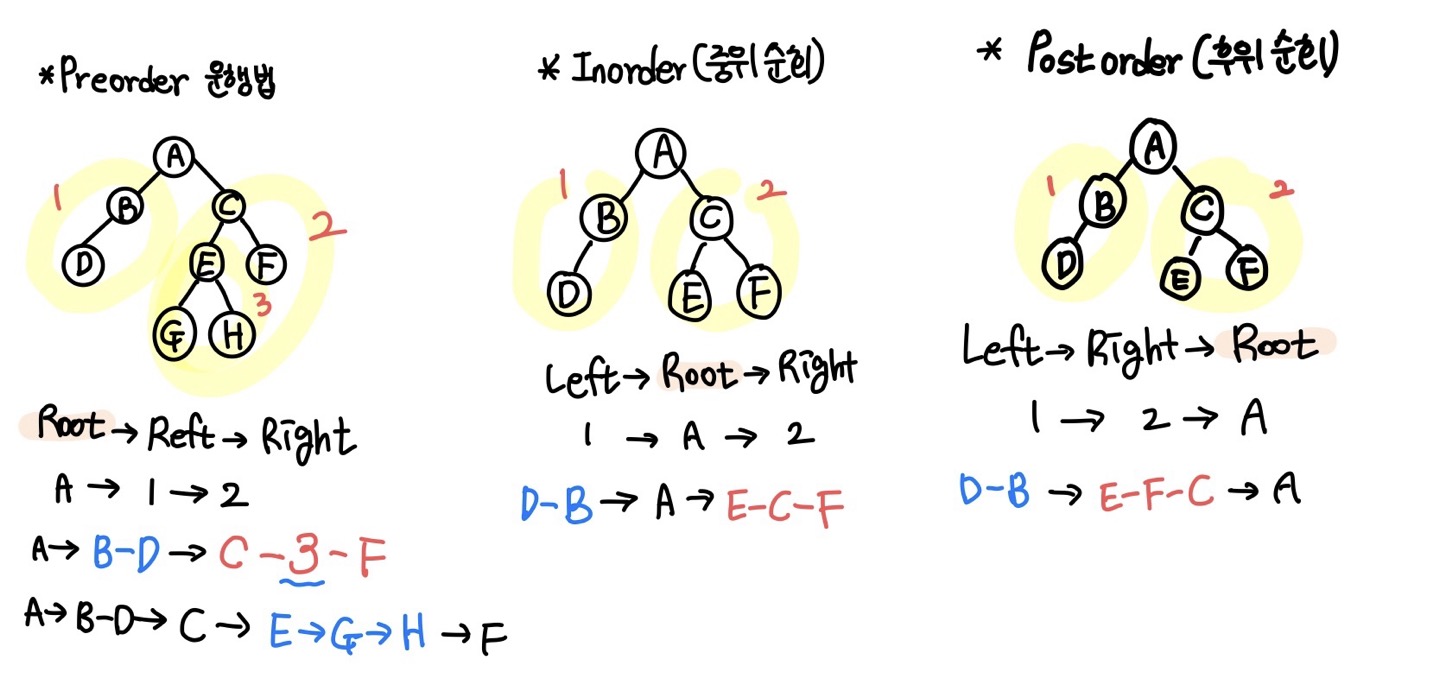 *Preorder 운행법
A
1
B
C
2
D
E
F
3
G
H
Root→Reft→Right
A→1→2
A→B-D→C-3-F
A→B-D→C→E→G→H→F
* Inorder(중위 순회)
A
1
2
B
C
D
E
F
Left→Root→Right
1→A→2
D-B→A→E-C-F
* Postorder(후위 순회)
A
1
2
B
C
D
E
F
Left→Right→Root
1→2→A
D-B→E-F-C→A